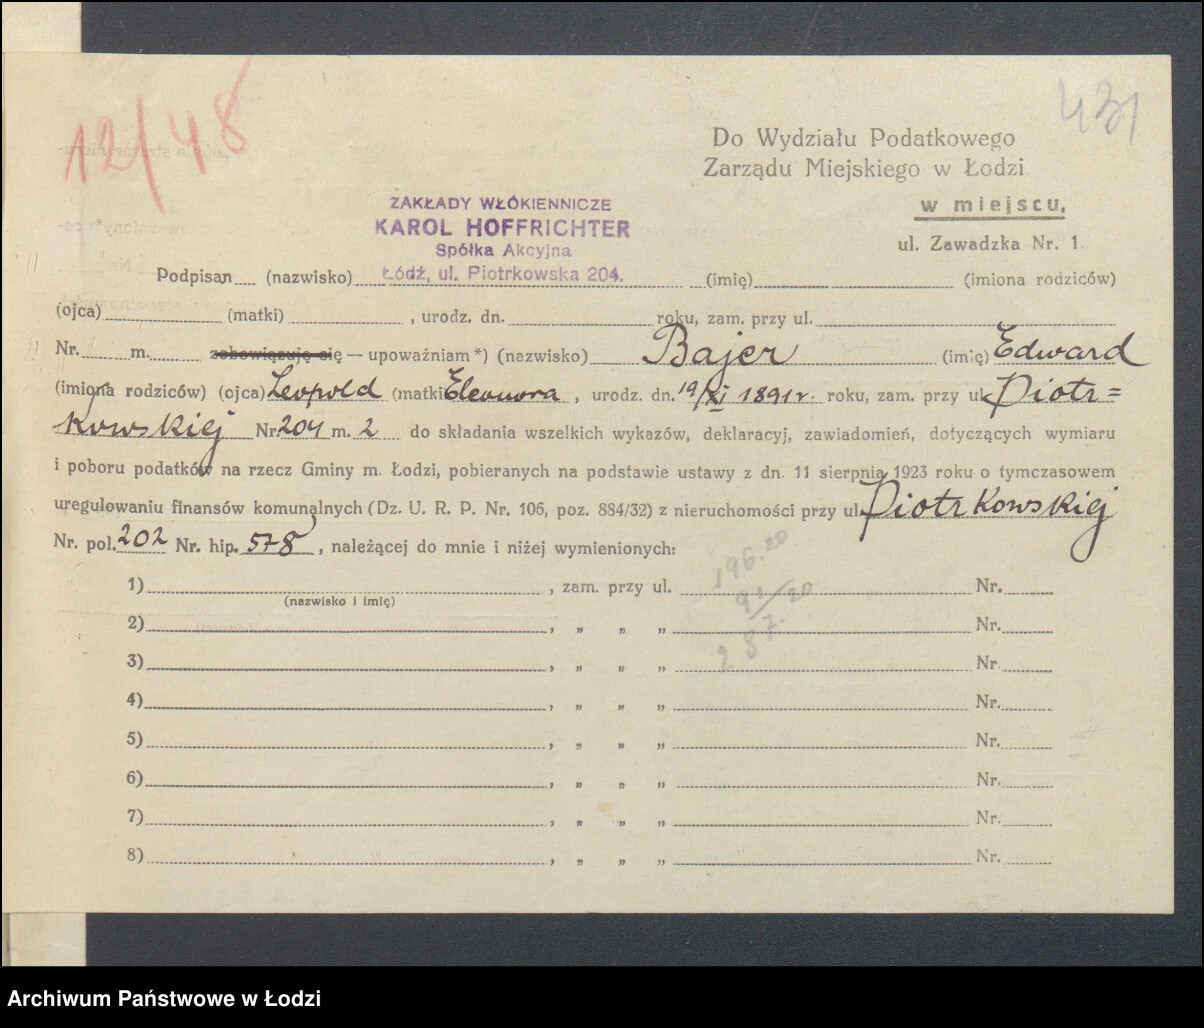 12/48
431
Do Wydziału Podatkowego
Zarządu Miejskiego w Łodzi
w miejscu,
ul. Zawadzka Nr. 1.
ZAKŁADY WŁÓKIENNICZE
KAROL HOFFRICHTER
Spółka Akcyjna
Łódź, ul. Piotrkowska 204.
Podpisan (nazwisko) (imię) (imiona rodziców)
(ojca) (matki) , urodz. dn. roku, zam. przy ul.
Nr. m. zobowiązuję się — upoważniam *) (nazwisko) Bajer (imię) Edward
(imiona rodziców) (ojca) Leopold (matki Eleonora , urodz. dn. 19/XI 1891 r. roku, zam. przy ul. Piotr=
kowskiej Nr. 204 m. 2 do składania wszelkich wykazów, deklaracyj, zawiadomień, dotyczących wymiaru
i poboru podatków na rzecz Gminy m. Łodzi, pobieranych na podstawie ustawy z dn. 11 sierpnia 1923 roku o tymczasowem
uregulowaniu finansów komunalnych (Dz. U. R. P. Nr. 106, poz. 884/32) z nieruchomości przy ul. Piotrkowskiej
Nr. pol. 202 Nr. hip. 578 , należącej do mnie i niżej wymienionych:
196.20
91/20
287.
1) , zam. przy ul. Nr.
(nazwisko i imię)
2) , „ „ „ Nr.
3) , „ „ „ Nr.
4) , „ „ „ Nr.
5) , „ „ „ Nr.
6) , „ „ „ Nr.
7) , „ „ „ Nr.
8) , „ „ „ Nr.
Archiwum Państwowe w Łodzi